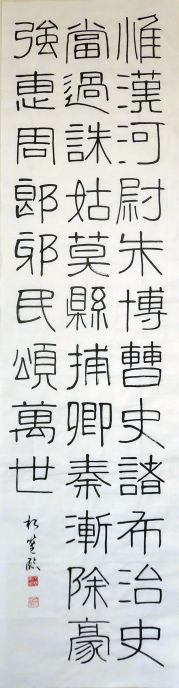 惟漢河尉朱博曹史諸布治史
當過誅姑莫縣捕卿秦漸除豪
強惠周郎邪民頌萬世